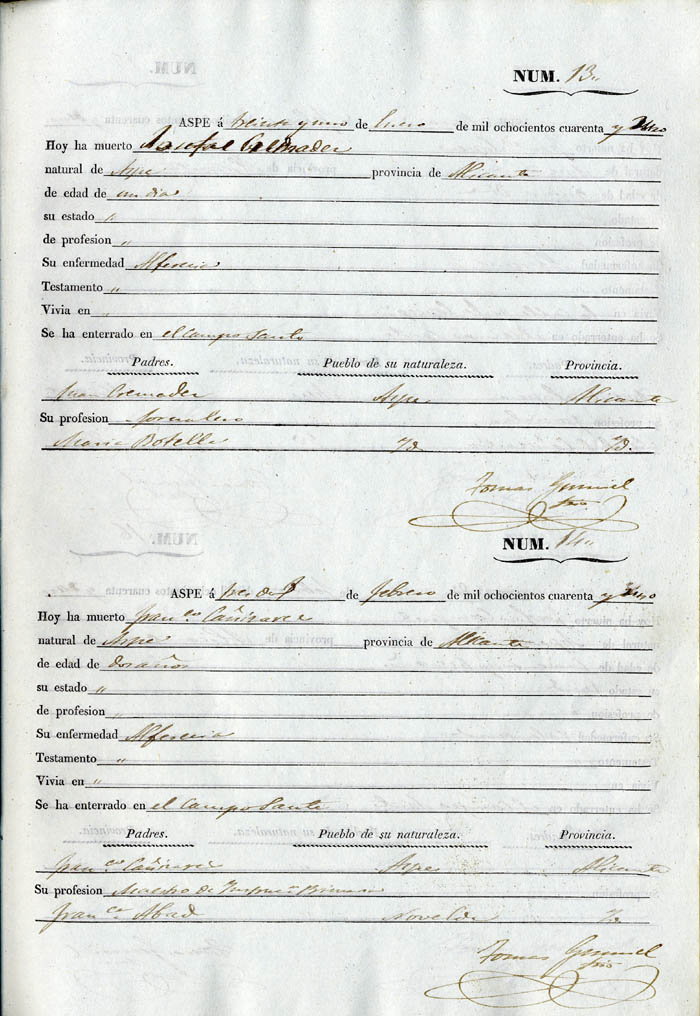 NUM. 13
ASPE á treinta y uno de Enero de mil ochocientos cuarenta y uno
Hoy ha muerto Cremades
natural de Aspe provincia de Alicante
de edad de un dia
su estado "
de profesion "
Su enfermedad Alferecia
Testamento "
Vivia en "
Se ha enterrado en el Campo Santo
Padres. Pueblo de su naturaleza. Provincia.
Juan Cremades Aspe Alicante
Su profesion jornalero
Maria Botella Yd. Yd.
Tomas
NUM. 14
ASPE á tres de Febrero de mil ochocientos cuarenta y uno
Hoy ha muerto Fran.co Cañizares
natural de Aspe provincia de Alicante
de edad de dos años
su estado "
de profesion "
Su enfermedad Alferecia
Testamento "
Vivia en "
Se ha enterrado en el Campo Santo
Padres. Pueblo de su naturaleza. Provincia.
Fran.co Cañizares Aspe Alicante
Su profesion Maestro de
Fran.ca Abad Novelda Yd
Tomas